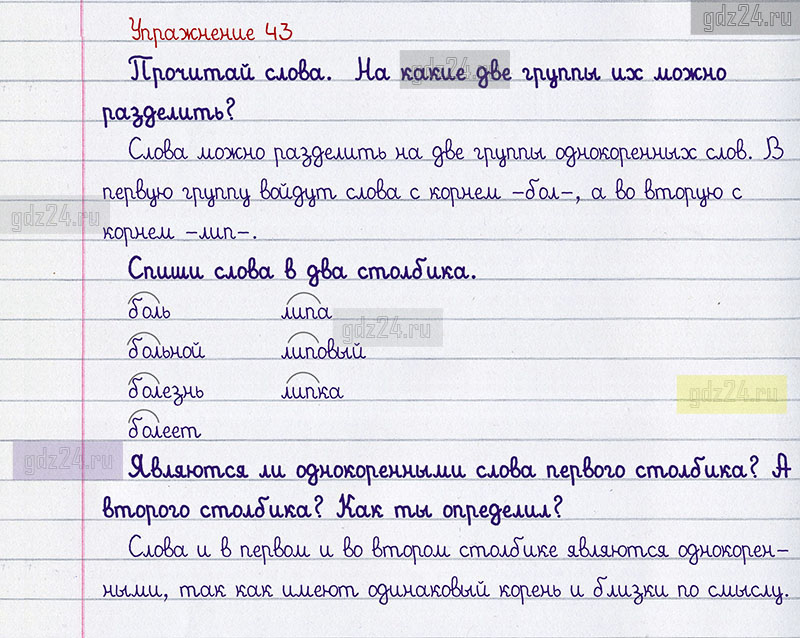 gdz24.ru
Упражнение 43
Прочитай слова. На какие две группы их можно
gdz24.ru
разделить?
Слова можно разделить на две группы однокоренных слов. В
первую группу войдут слова с корнем –бол–, а во вторую с
gdz24.ru
корнем –лип–.
Спиши слова в два столбика.
боль липа
gdz24.ru
больной липовый
болезнь липка
gdz24.ru
болеет
gdz24.ru
Являются ли однокоренными слова первого столбика? А
второго столбика? Как ты определил?
Слова и в первом и во втором столбике являются однокорен–
ными, так как имеют одинаковый корень и близки по смыслу.